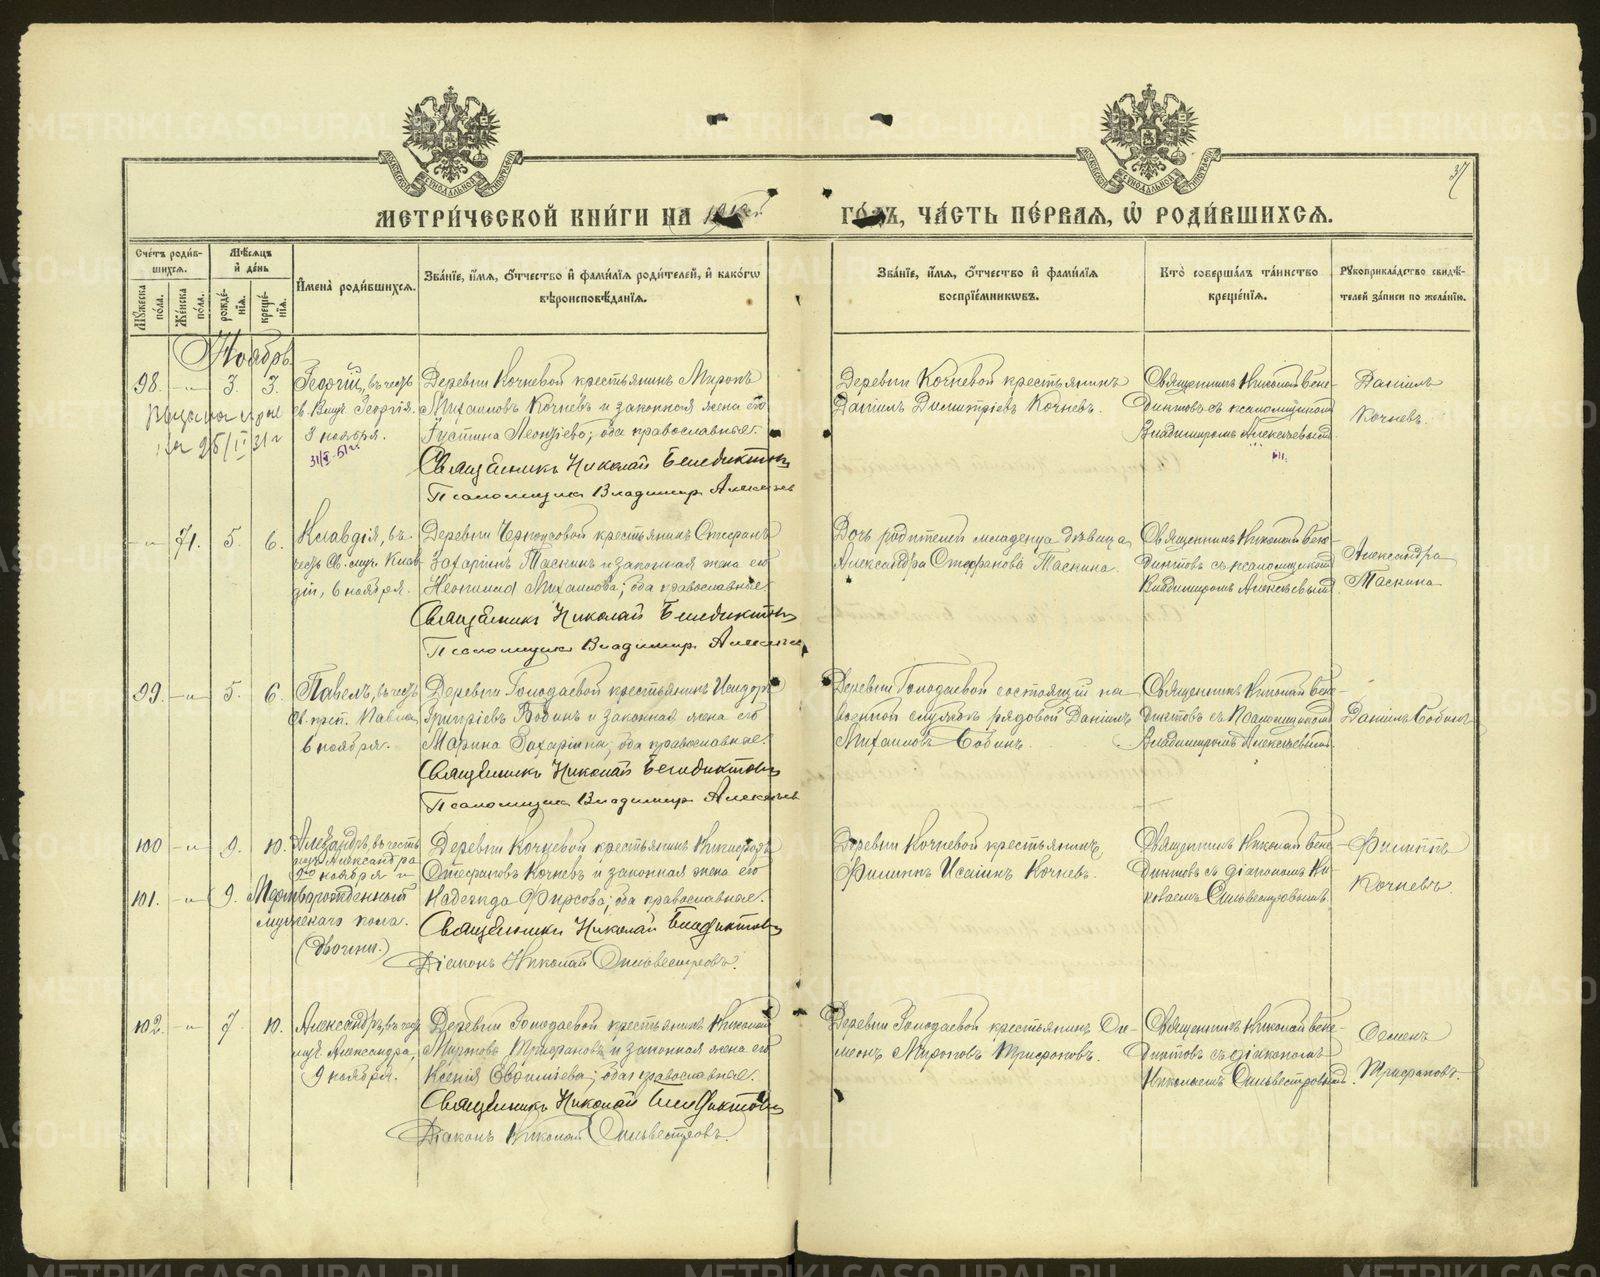 МОСКОВСКОЙ СѴНОДАЛЬНОЙ ТИПОГРАФІИ
МОСКОВСКОЙ СѴНОДАЛЬНОЙ ТИПОГРАФІИ
37
МЕТРИ́ЧЕСКОЙ КНИ́ГИ НА
ГО́ДЪ, ЧА́СТЬ ПЕ́РВАЯ, Ѽ РОДИ́ВШИХСЯ.
Сче́тъ роди́в-
шихся.
Мѣ́сяцъ
и҆ де́нь
Мꙋ́жеска по́ла.
Же́нска по́ла.
рожде́-
нїя.
креще́-
нїя.
И҆мена̀ роди́вшихся.
Зва́нїе, и҆́мя, ѻ҆́тчество и҆ фами́лїя роди́телей, и҆ како́гѡ
вѣроисповѣ́данїя.
Зва́нїе, и҆́мя, ѻ҆́тчество и҆ фами́лїя
воспрїе́мникѡвъ.
Кто̀ соверша́лъ та́инство
креще́нїя.
Рꙋкоприкла́дство свидѣ́-
телей за́писи по жела́нїю.
Ноябрь
98. —„— 3. 3.
Георгій, въ честь
св. Влмч. Георгія.
3 ноября.
Деревни Кочневой крестьянинъ Миронъ
Михаиловъ Кочневъ и законная жена его
Іустина Леонтіева; оба православные.
Священникъ Николай Бенедиктовъ
Псаломщикъ Владимиръ Алексѣевъ
Деревни Кочневой крестьянинъ
Даніилъ Димитріевъ Кочневъ.
Священникъ Николай Бене-
диктовъ съ псаломщикомъ
Владимиромъ Алексѣевымъ
Даніилъ
Кочневъ.
—„— 71. 5. 6.
Клавдія, въ
честь Св. муч. Клав-
діи, 6 ноября.
Деревни Черноусовой крестьянинъ Стефанъ
Захаріинъ Таскинъ и законная жена его
Неонилла Михаилова; оба православные.
Священникъ Николай Бенедиктовъ
Псаломщикъ Владимиръ Алексѣевъ
Дочь родителей младенца дѣвица
Александра Стефанова Таскина.
Священникъ Николай Бене-
диктовъ съ псаломщикомъ
Владимиромъ Алексѣевымъ
Александра
Таскина
99. —„— 5. 6.
Павелъ, въ честь
Св. Павла,
6 ноября.
Деревни Голодаевой крестьянинъ Исидоръ
Григоріевъ Бобинъ и законная жена его
Марина Захаріина; оба православные.
Священникъ Николай Бенедиктовъ
Псаломщикъ Владимиръ Алексѣевъ
Деревни Голодаевой состоящій на
военной службѣ рядовой Даніилъ
Михаиловъ Бобинъ.
Священникъ Николай Бене-
диктовъ съ Псаломщикомъ
Владимиромъ Алексѣевымъ.
Даніилъ Бобинъ
100 —„— 9. 10.
Александръ, въ честь
муч. Александра
9го ноября и
101. —„— 9.
Мертворожденный
мужескаго пола.
(двойни.)
Деревни Кочневой крестьянинъ Никифоръ
Стефановъ Кочневъ и законная жена его
Надежда Фирсова; оба православные.
Священникъ Николай Бенедиктовъ
Діаконъ Николай Сильвестровъ.
Деревни Кочневой крестьянинъ
Филиппъ Исаіинъ Кочневъ.
Священникъ Николай Бене-
диктовъ съ діакономъ Ни-
колаемъ Сильвестровымъ.
Филиппъ
Кочневъ.
102. —„— 7. 10.
Александръ, въ честь
муч. Александра,
9 ноября.
Деревни Голодаевой крестьянинъ Николай
Мироновъ Трифановъ и законная жена его
Ксенія Евфиміева; оба православные.
Священникъ Николай Бенедиктовъ
Діаконъ Николай Сильвестровъ.
Деревни Голодаевой крестьянинъ Си-
меонъ Мироновъ Трифановъ.
Священникъ Николай Бене-
диктовъ съ діакономъ
Николаемъ Сильвестровымъ.
Семенъ
Трифановъ.
METRIKI.CASO-URAL.RU